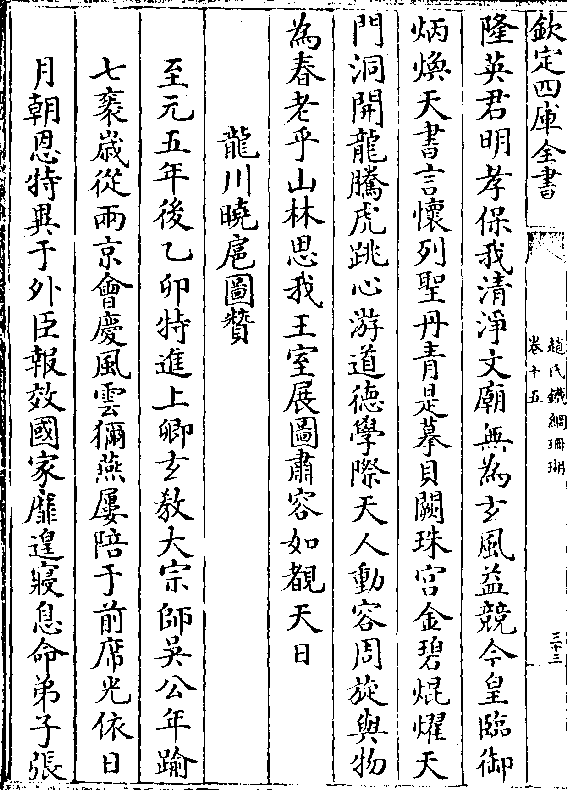 欽定四庫全書
趙氏鐵網珊瑚
卷十五
三十三
隆英君明孝保我清淨文廟無為玄風益競今皇臨御
炳煥天書言懷列聖丹青是摹貝闕珠宮金碧焜燿天
門洞開龍騰虎跳心游道德學際天人動容周旋與物
為春老乎山林思我王室展圖肅容如覩天日
龍川曉扈圖贊
至元五年後乙卯特進上卿玄教大宗師吳公年踰
七袠歲從兩京會慶風雲獮燕屢陪于前席光依日
月朝恩特異于外臣報效國家靡遑寢息命弟子張